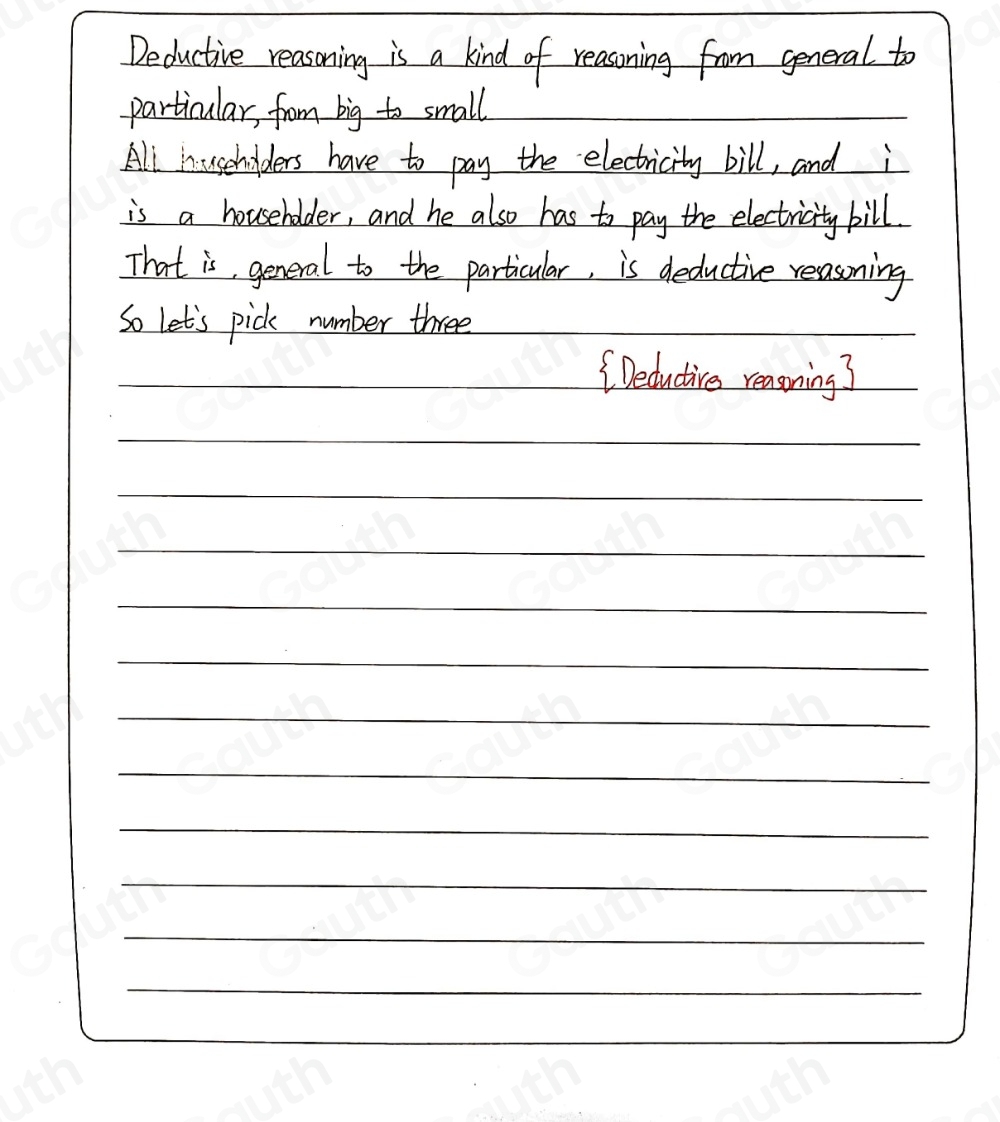 Deductive reasoning is a kind of reasoning from general to
particular, from big to small
All householders have to pay the electricity bill, and i
is a householder, and he also has to pay the electricity bill.
That is, general to the particular, is deductive reasoning
So let's pick number three
{Deductive reasoning}